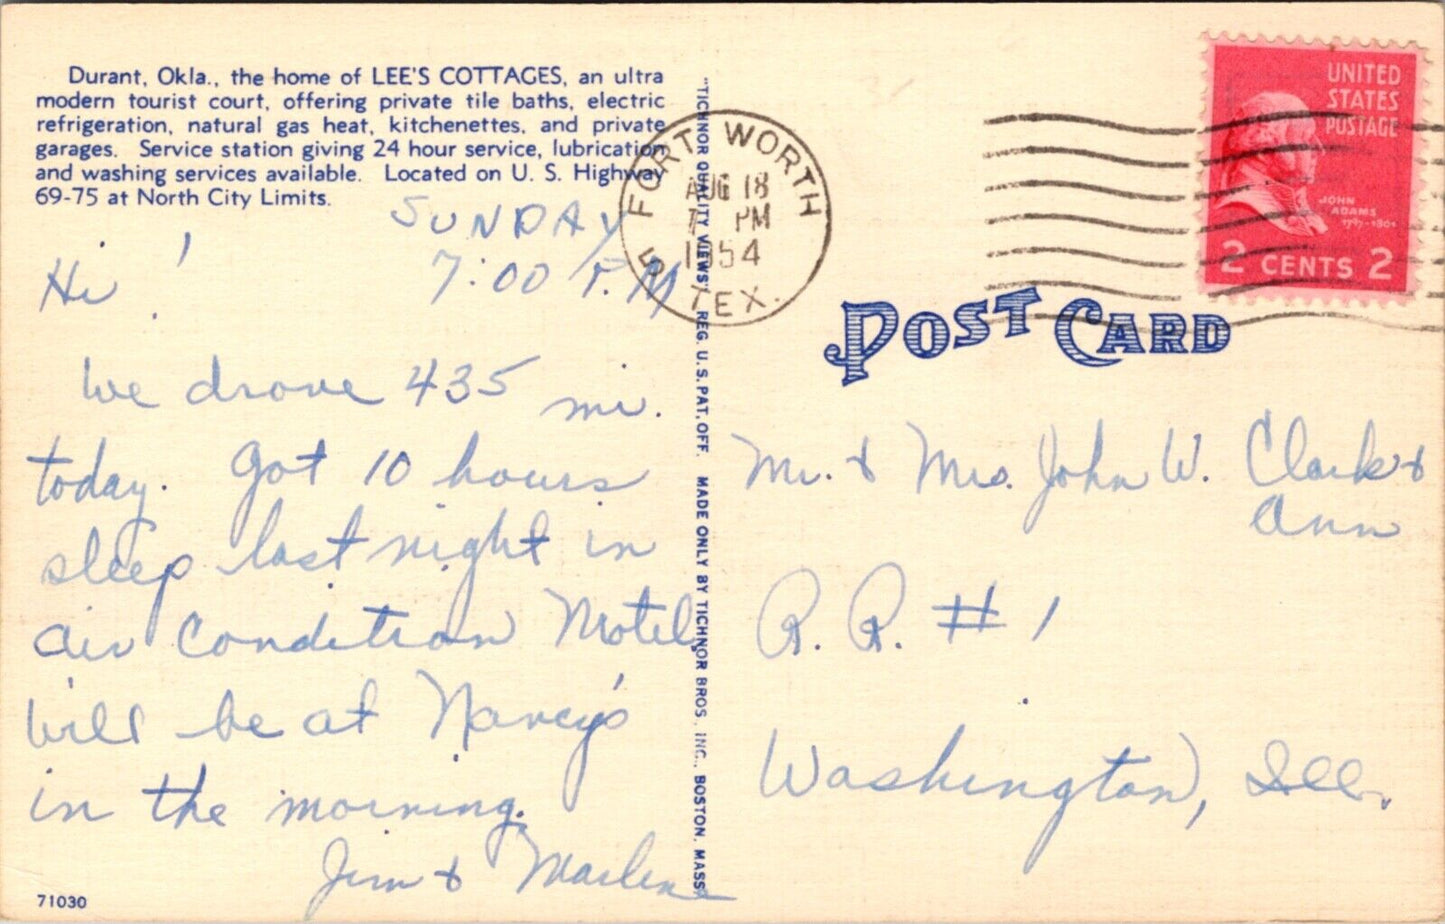 Durant, Okla., the home of LEE'S COTTAGES, an ultra
modern tourist court, offering private tile baths, electric
refrigeration, natural gas heat, kitchenettes, and private
garages. Service station giving 24 hour service, lubrication
and washing services available. Located on U. S. Highway
69-75 at North City Limits.
SUNDAY
7:00 P.M
Hi!
We drove 435 mi.
today. Got 10 hours
sleep last night in
air condition Motel
will be at Nancy's
in the morning.
Jim & Marlene
71030
"TICHNOR QUALITY VIEWS," REG. U. S. PAT. OFF. MADE ONLY BY TICHNOR BROS. INC., BOSTON, MASS.
FORT WORTH
AUG 18
7 PM
1954
TEX.
UNITED
STATES
POSTAGE
JOHN
ADAMS
1797-1801
2 CENTS 2
POST CARD
Mr. & Mrs. John W. Clark &
Ann
R. R. # 1
Washington, Ill.